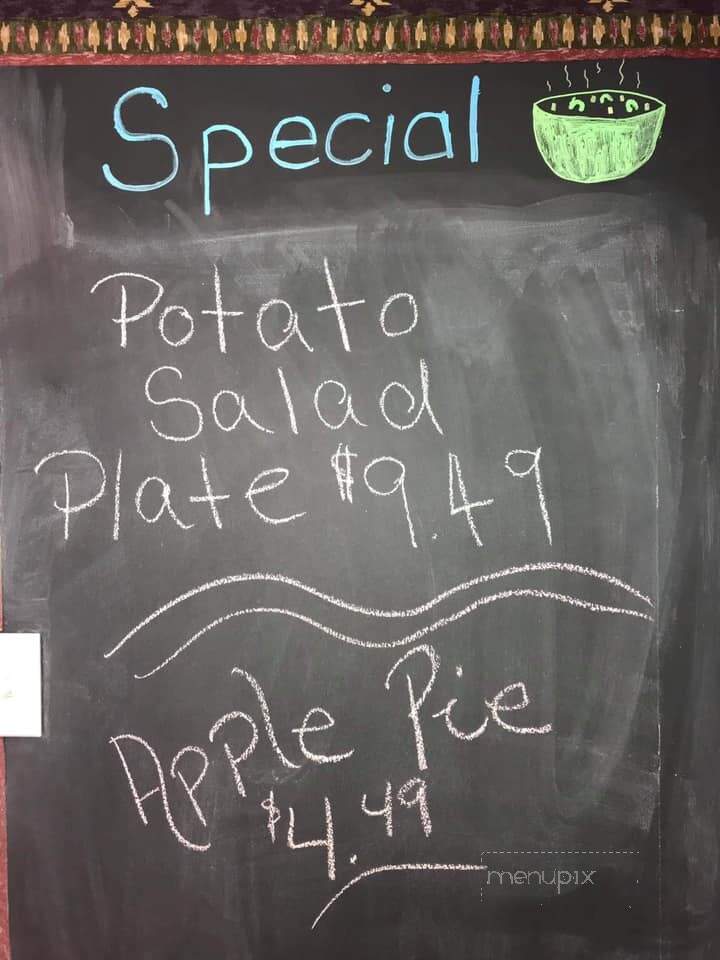 Special
Potato
Salad
Plate $9.49
Apple Pie
$4.49
menupix